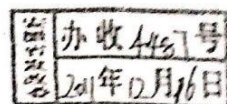 办收4487号
2011年12月16日